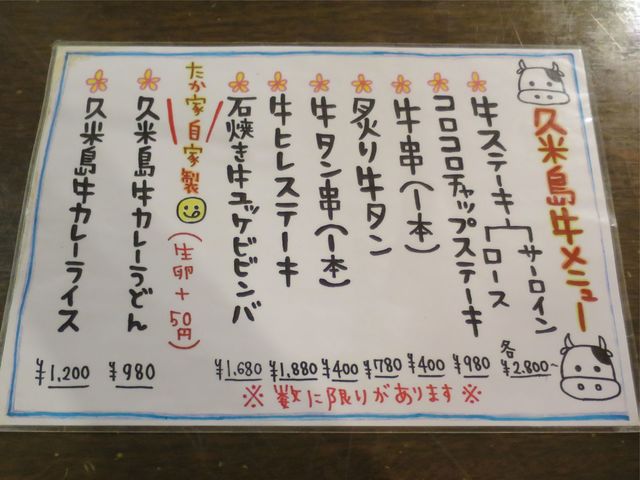 久米島牛メニュー
牛ステーキ サーロイン ロース 各 ¥2,800~
コロコロチャップステーキ ¥980
牛串(1本) ¥400
炙り牛タン ¥780
牛タン串(1本) ¥400
牛ヒレステーキ ¥1,880
石焼き牛ユッケビビンバ ¥1,680
たか家自家製 (生卵+50円)
久米島牛カレーうどん ¥980
久米島牛カレーライス ¥1,200
※ 数に限りがあります ※